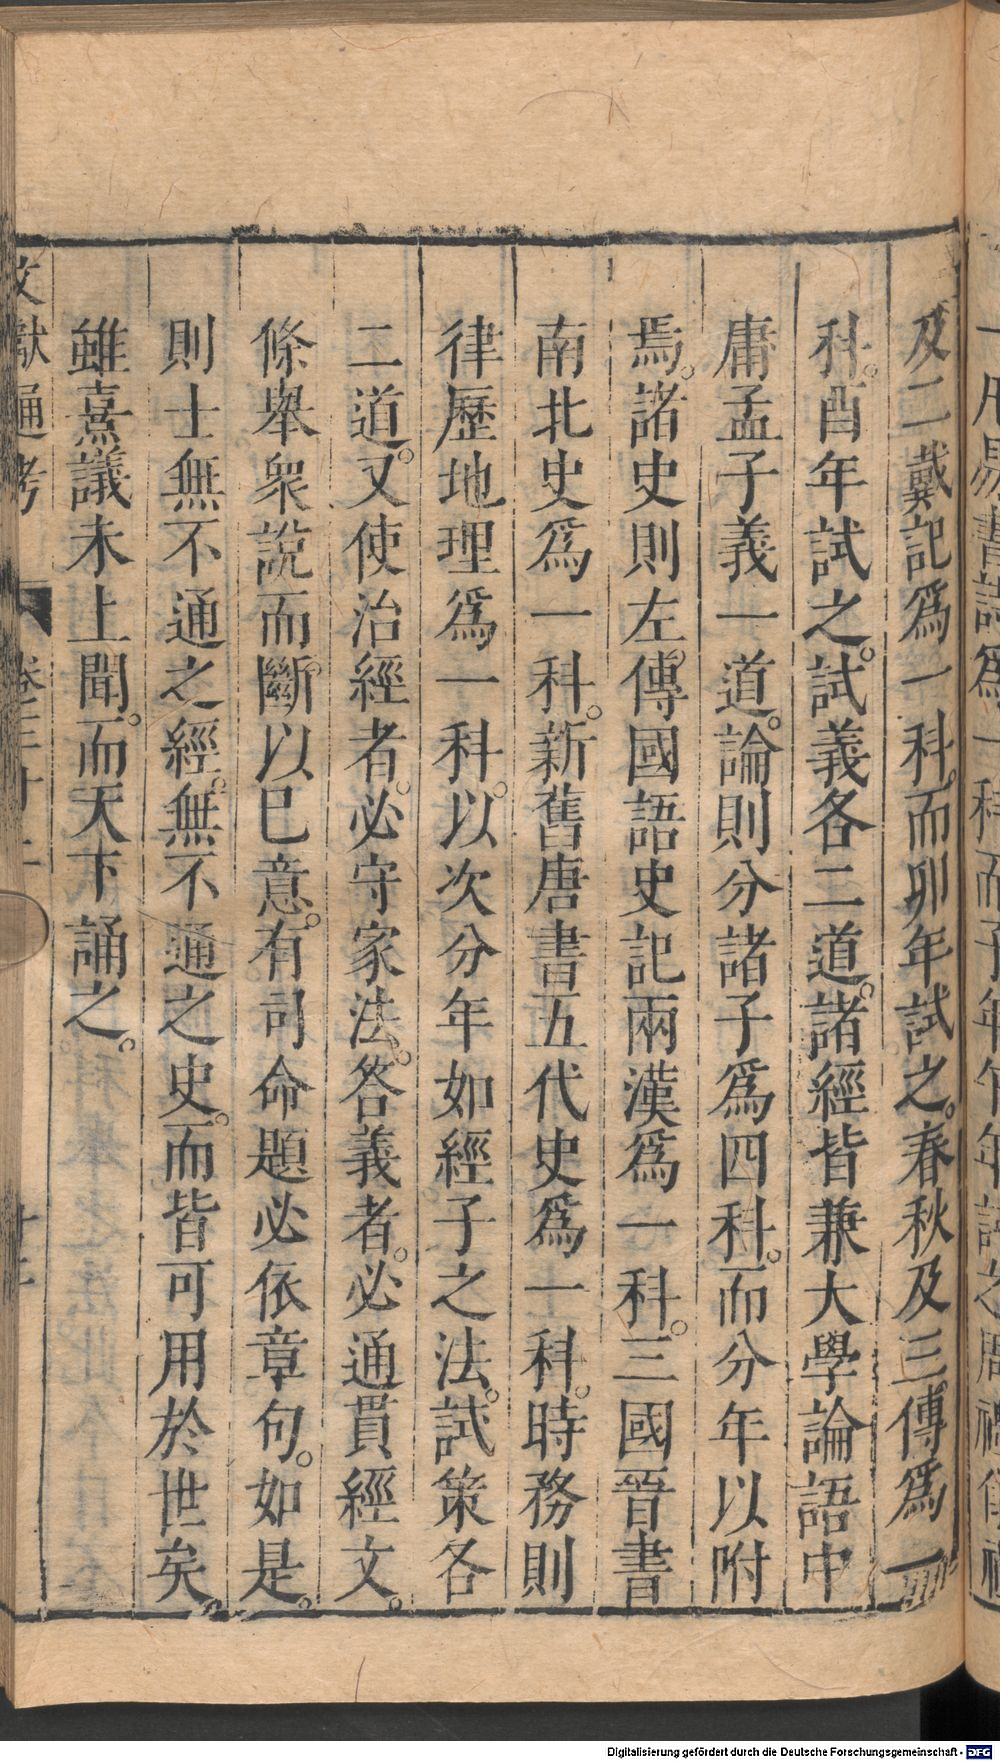 及二戴記爲一科。而卯年試之。春秋及三傳爲一
科。酉年試之。試義各二道。諸經皆兼大學論語中
庸孟子義一道。論則分諸子爲四科。而分年以附
焉。諸史則左傳國語史記兩漢爲一科。三國晉書
南北史爲一科。新舊唐書五代史爲一科。時務則
律歷地理爲一科。以次分年如經子之法。試策各
二道。又使治經者。必守家法。答義者。必通貫經文。
條舉衆說而斷以巳意。有司命題必依章句。如是。
則士無不通之經。無不通之史。而皆可用於世矣。
雖熹議未上聞。而天下誦之。
文獻通考 卷三十二
Digitalisierung gefördert durch die Deutsche Forschungsgemeinschaft - DFG